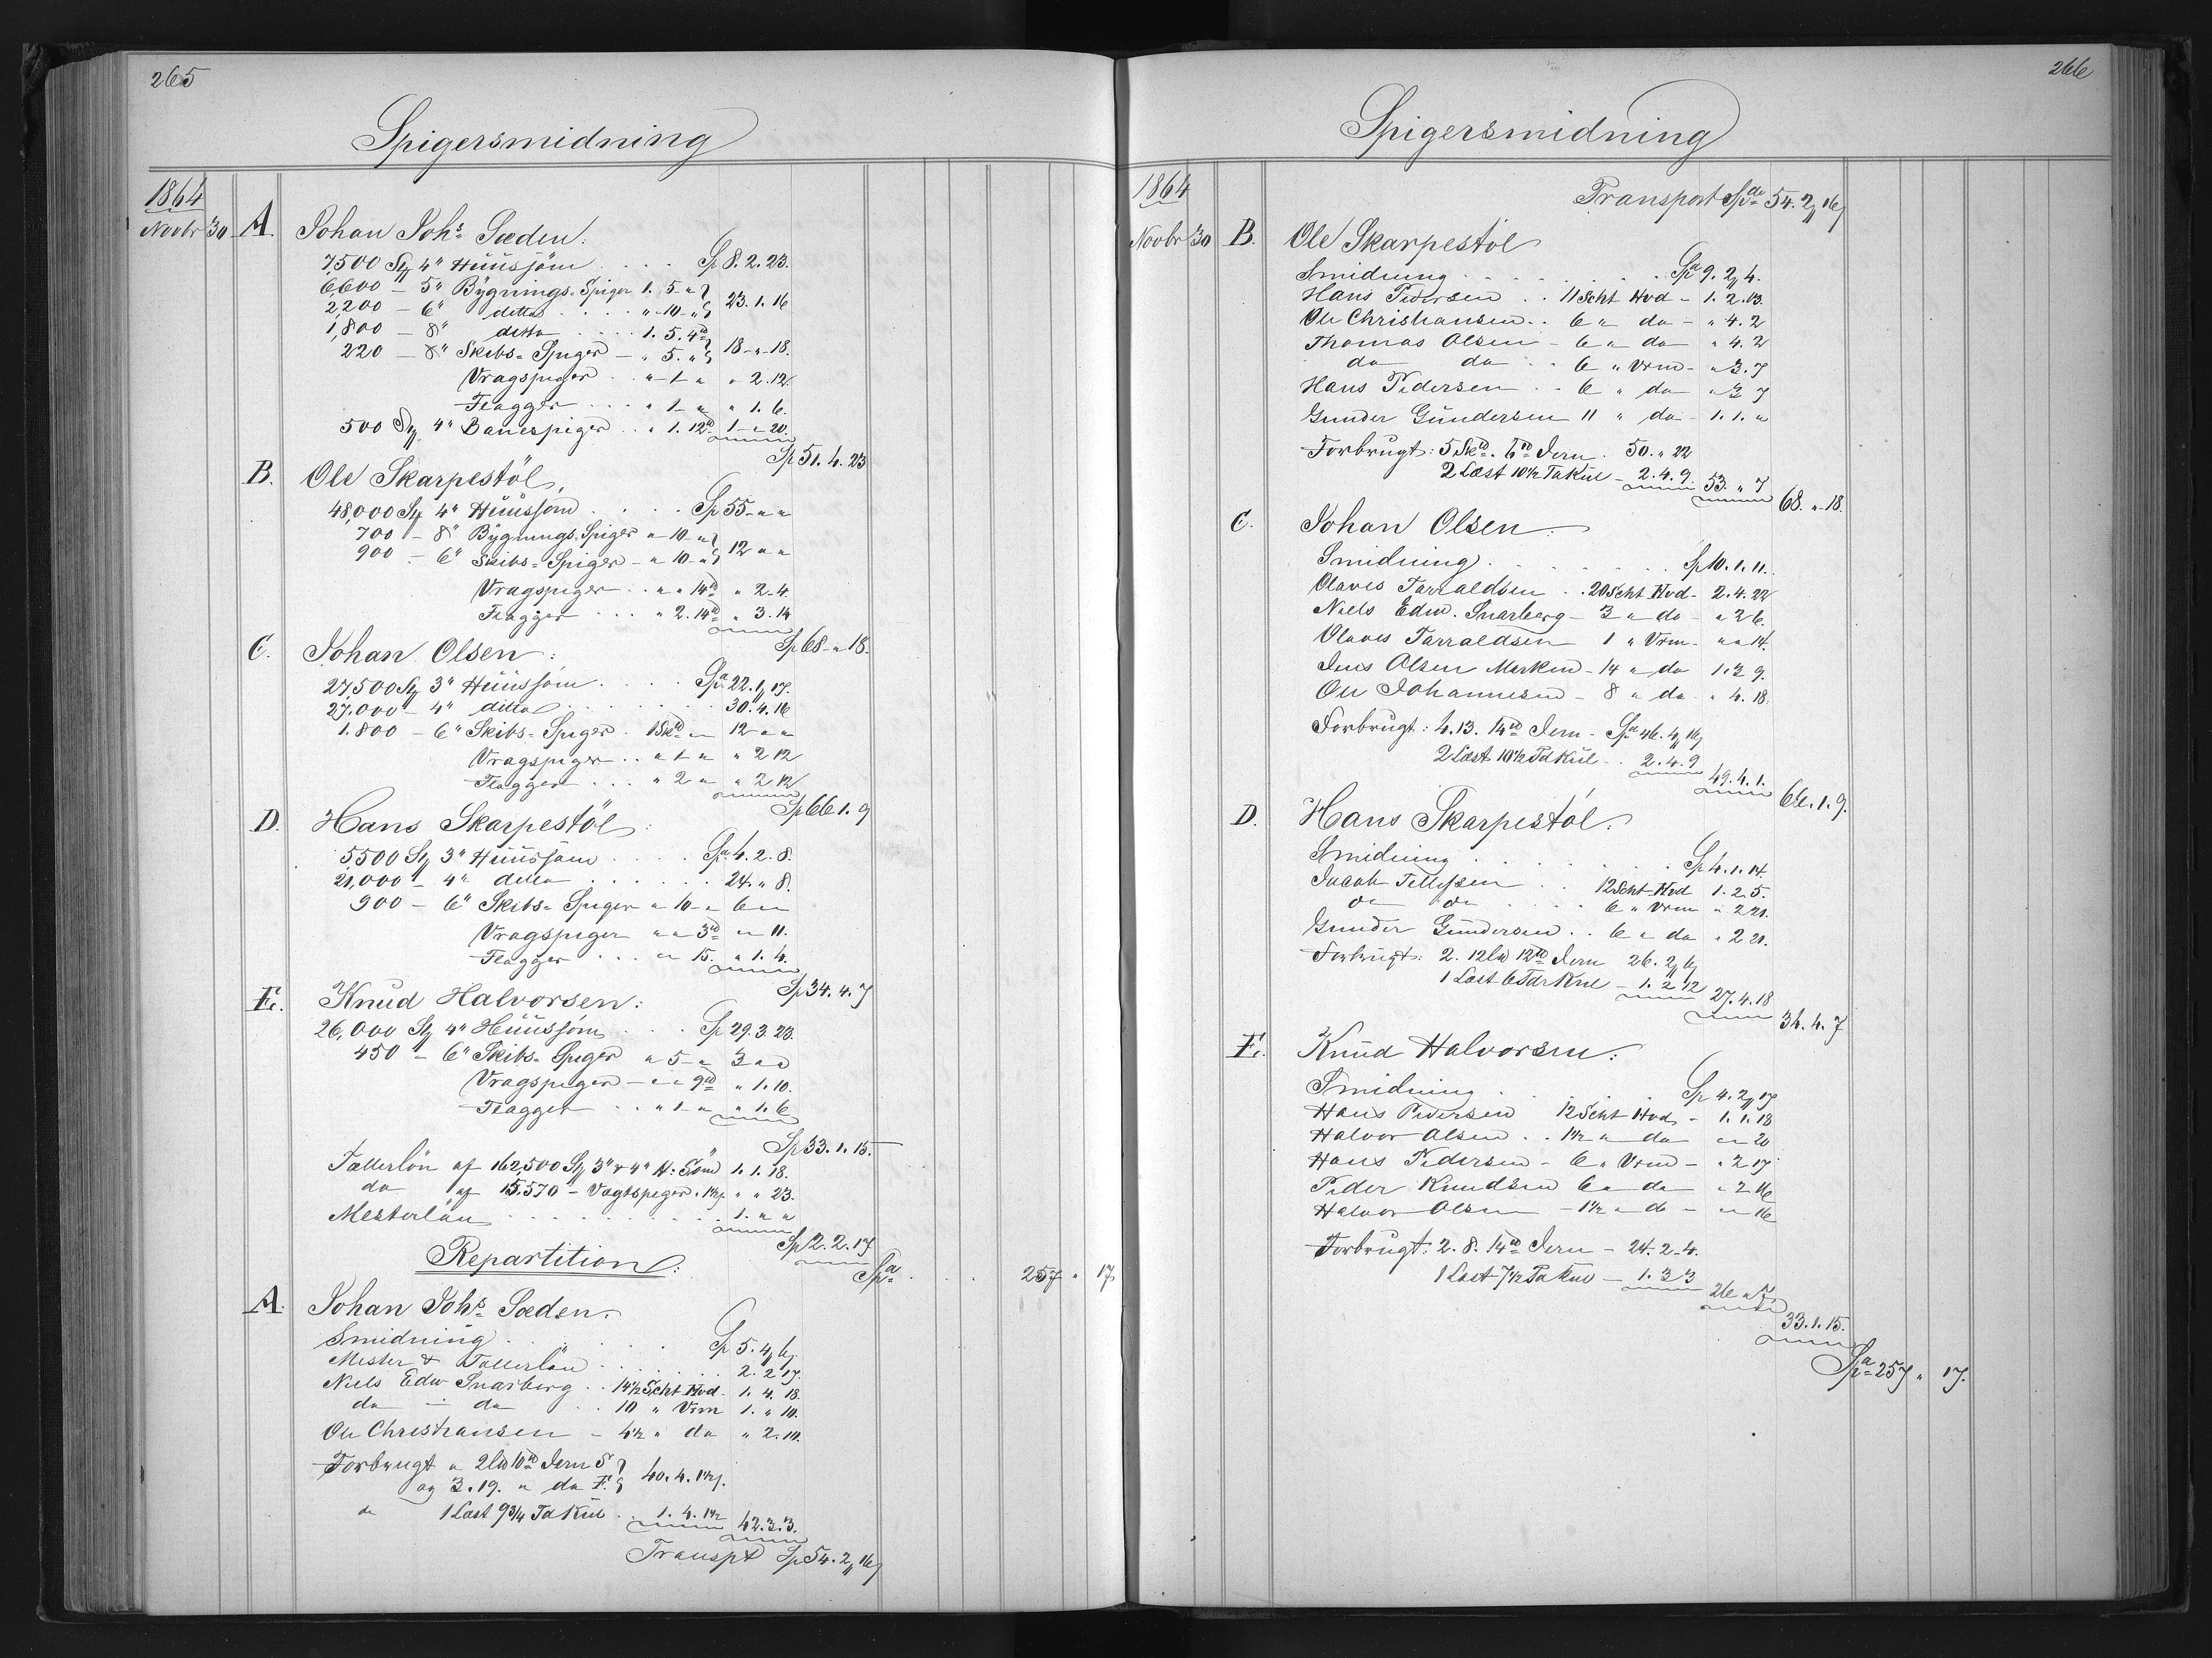 265
Spigersmidning
1864
Novbr 30 A. Johan Johs. Sæden:
7,500 St 4" Huussöm . . . Sp 8. 2. 23.
6,600 – 5" Bygnings-Spiger 1. 5 "
2,200 – 6" ditto . . . . " 10 – " 23. 1. 16
1,800 – 8" ditto . . . . 1. 5. 4
220 – 8" Skibs-Spiger – " 5. " 18 – " 18.
Vragspiger . . " 1 " " 2. 12.
Flagger . . . " 1 " " 1. 6.
500 St 4" Banespiger . . " 1. 12 1 – " 20.
Sp 51. 4. 23
B. Ole Skarpestöl,
48,000 St 4" Huussöm . . . . Sp 55 – " "
700 – 8" Bygnings-Spiger " 10 – "
900 – 6" Skibs-Spiger – " 10 – " 12 " "
Vragspiger . . " " 14 " 2. 4.
Flagger . . . " 2. 14 " 3. 14
Sp 68 – " 18.
C. Johan Olsen:
27,500 St 3" Huussöm . . . . Sp 22. 1. 17.
27,000 – 4" ditto . . . . . . 30. 4. 16
1.800 – 6" Skibs-Spiger . 1 Sk " – 12 " "
Vragspiger . . " 1 " " 2 12
Flagger . . . " 2 " " 2 12
Sp 66 1. 9
D. Hans Skarpestöl:
5500 St 3" Huussöm . . . . Sp 4. 2. 8.
21,000 – 4" ditto . . . . . . 24. " 8.
900 – 6" Skibs-Spiger " 10 – " 6 " "
Vragspiger " " 3 " " 11.
Flagger . . . " " 15. " 1. 4.
Sp 34. 4. 7
E. Knud Halvorsen:
26,000 St 4" Huussöm . . . Sp 29. 3. 23.
450 – 6" Skibs-Spiger " 5 – " 3 " "
Vragspiger – " " 9 " 1. 10.
Flagger . . " 1 – " " 1. 6
Sp 33. 1. 15.
Tællerlön af 162,500 St 3" & 4" H. Söm 1. 1. 18.
do af 15,570 – Vægtspiger . 1½ " " 23.
Mesterlön . . . . . . . . . . 1. " "
Sp 2. 2. 17
Repartition: Sp . . . 257 " 17
A. Johan Johs. Sæden.
Smidning . . . . . . Sp 5. 4. 6
Mester & Tællerlön . . . . . 2. 2 17.
Niels Edw Snarberg . . 14½ Scht Hvd – 1. 4. 18.
do – do . . 10 " Vrm 1. " 10.
Ole Christiansen – 4½ " do " 2. 10.
Forbrugt " 2 Lw 10 Jern S
og 3. 19. " do F. 40. 4. 1½.
do 1 Læst 9¾ Td Kul . . 1. 4. 1½ 42. 3. 3.
Transpt Sp 54. 2. 16
266
Spigersmidning
1864
Transport Sp 54. 2. 16
Novbr 30 B. Ole Skarpestöl
Smidning . . . . . . . . Sp 9. 2. 4.
Hans Pedersen . . 11 Scht Hvd – 1. 2. 13.
Ole Christiansen . . 6 " do – " 4. 2
Thomas Olsen – 6 " do " 4. 2
do do . . 6 " Vrm – " 3. 7
Hans Pedersen . . 6 " do " 3 7
Gunder Gundersen 11 " do – 1. 1. "
Forbrugt: 5 Sk. 6 Jern . 50. " 22
2 Læst 10½ Ta Kul – 2. 4. 9. 53. " 7
68. " 18.
C. Johan Olsen.
Smidning . . . . . . . Sp 10. 1. 11.
Olaves Tarraldsen . . 20 Scht Hvd – 2. 4. 22
Niels Edw. Snarberg – 3 " do – " 2 6.
Olaves Tarraldsen 1 " Vrm – " " 14.
Jens Olsen Merken – 14 " do 1. 3 9.
Ole Johannesen – 8 " do " 4. 18.
Forbrugt: 4. 13. 14 Jern – Sp 46. 4. 16
2 Læst 10½ Td Kul . . 2. 4. 9
49. 4. 1.
66. 1. 9.
D. Hans Skarpestöl:
Smidning . . . . . . . . Sp 4. 1. 14.
Jacob Tellefsen . . 12 Scht Hvd 1. 2. 5.
do do . . . . 6 " Vrm " 2 21.
Gunder Gundersen . . 6 " do " 2 21.
Forbrugt: 2. 12 Lw 12 Jern 26. 2. 6
1 Læst 6 Tdr Kul – 1. 2 12
27. 4. 18
34. 4. 7
E. Knud Halvorsen:
Smidning . . . . . . Sp 4. 2. 17
Hans Pedersen 12 Scht Hvd – 1. 1. 18
Halvor Olsen . . 1½ " do " " 20
Hans Pedersen – 6 " Vrm – " 2 17
Peder Knudsen 6 " do " 2 16
Halvor Olsen – 1½ " do – " " 16
Forbrugt: 2. 8. 14 Jern – 24. 2. 4.
1 Læst 7½ Ta Kul – 1. 3 3
26 " 7
33. 1. 15.
Sp 257 " 17.